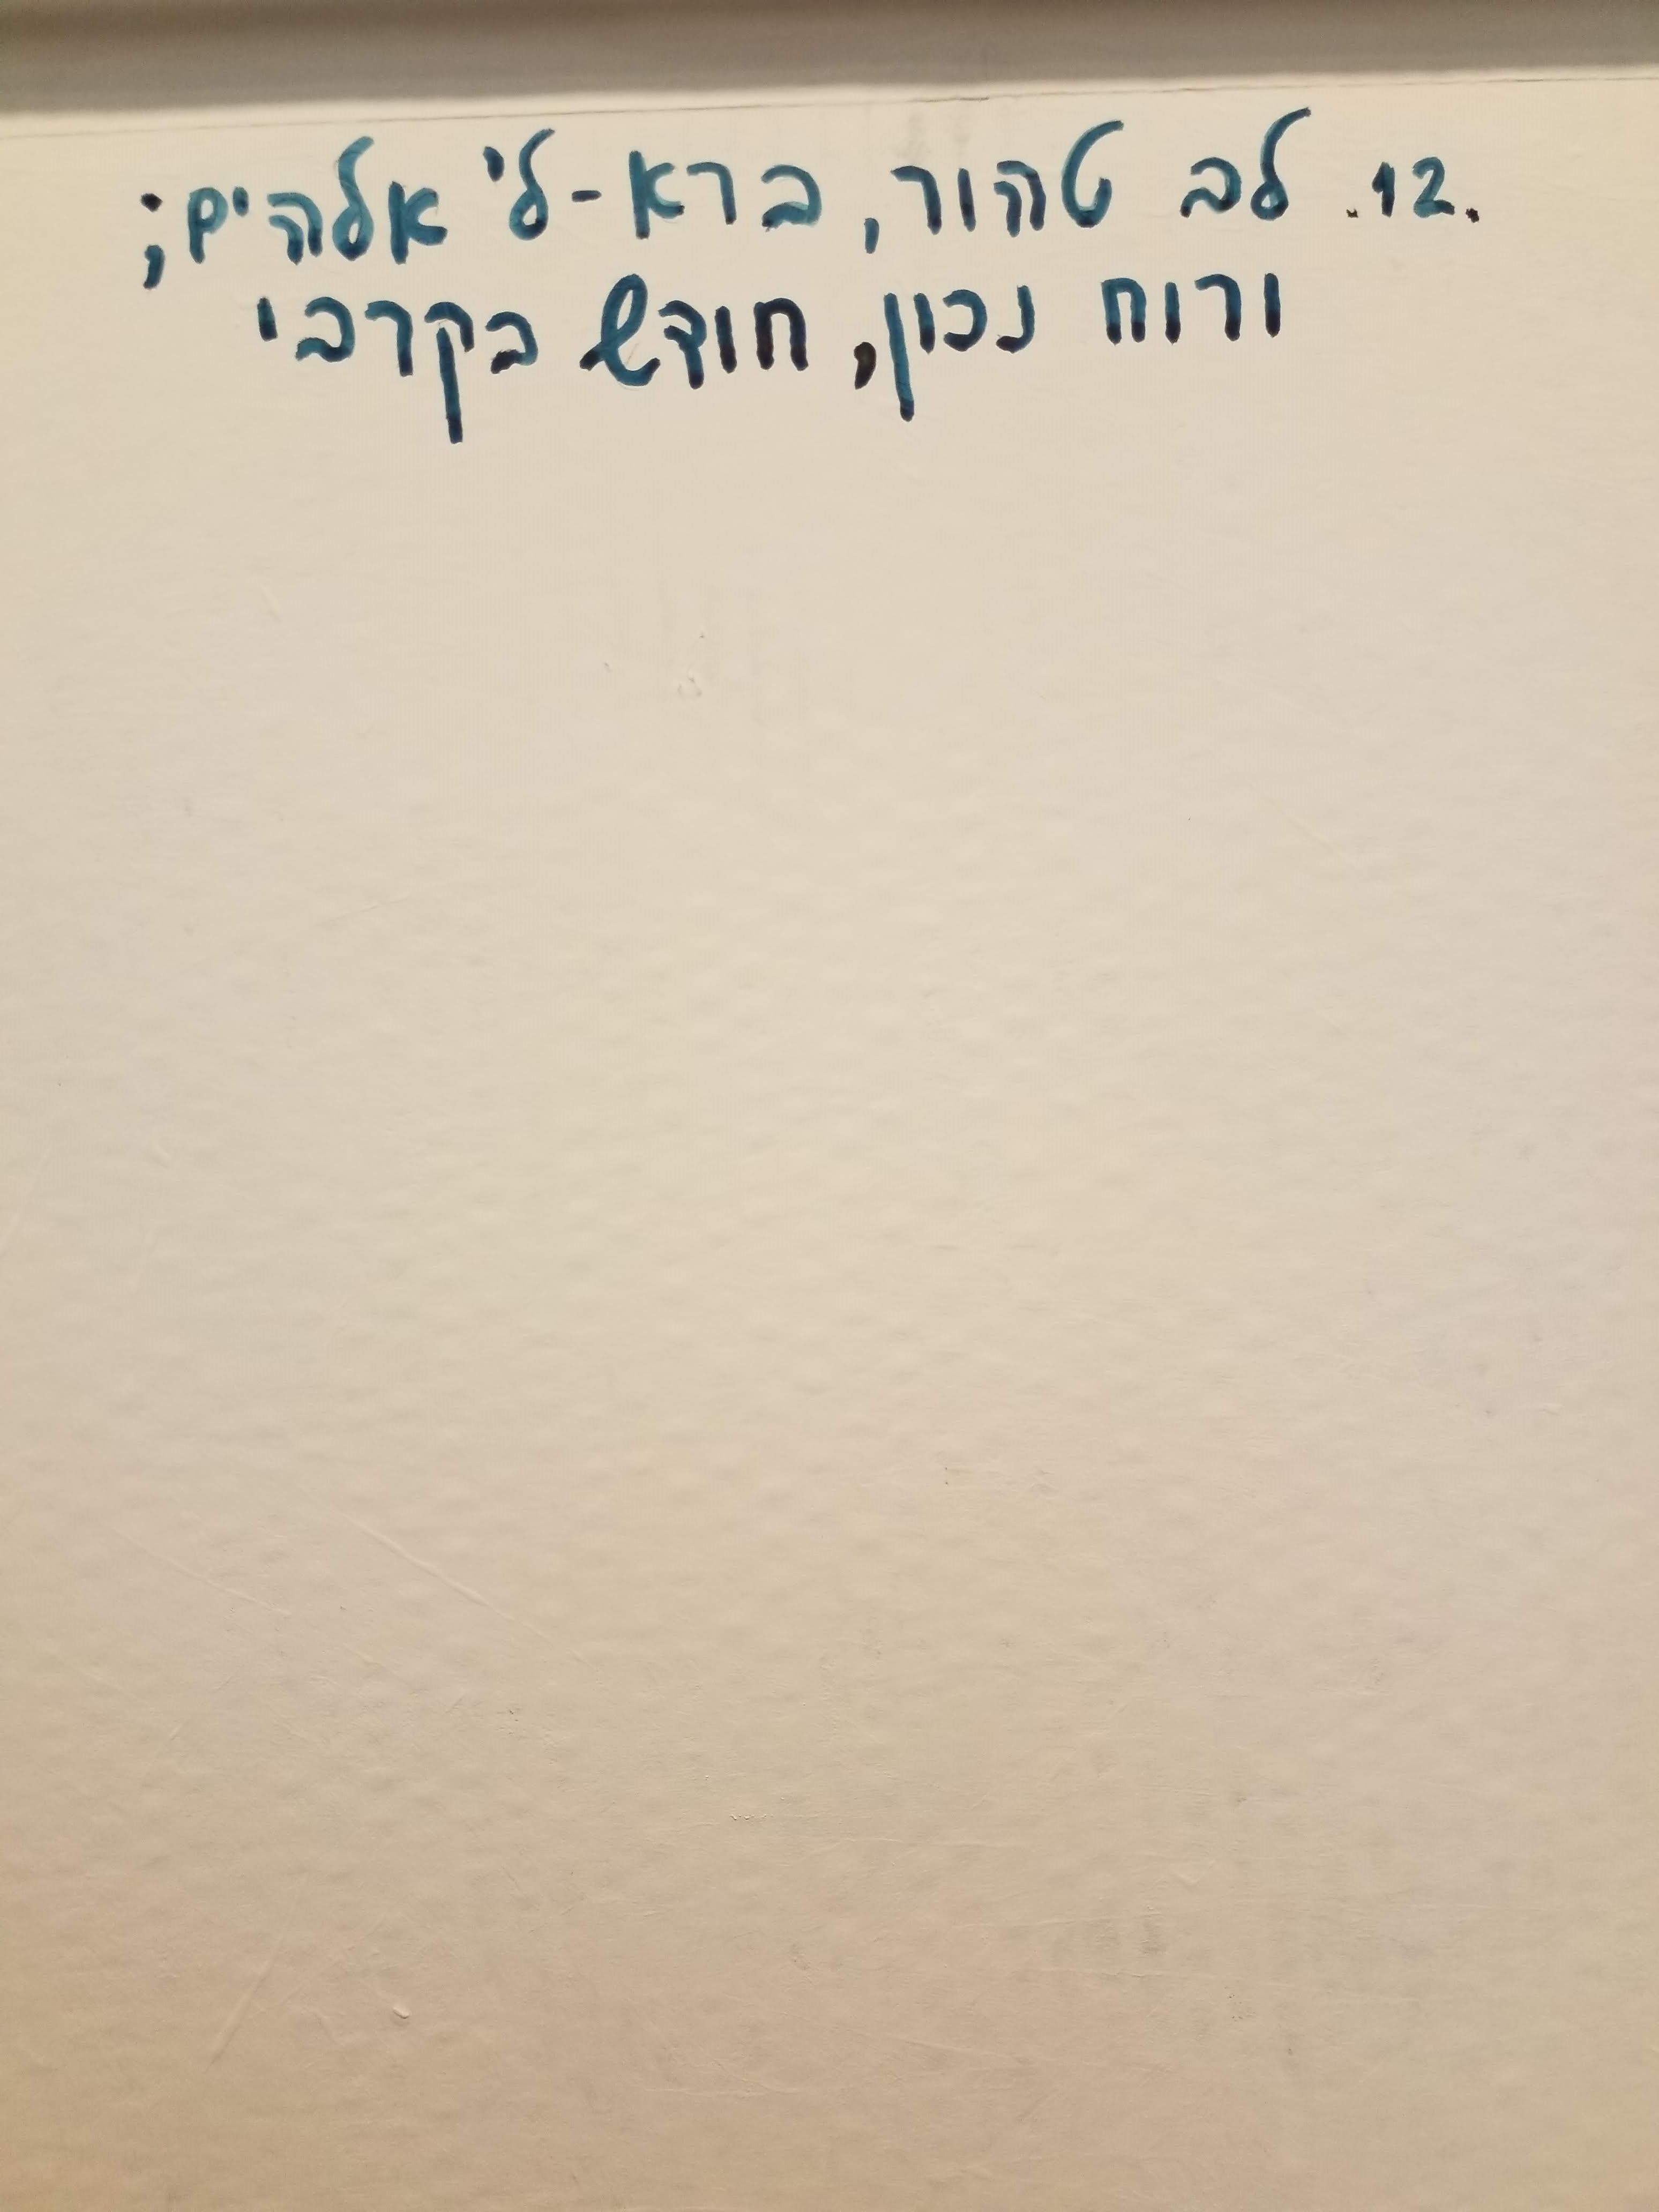 .12. לב טהור, ברא-לי אלהים;
ורוח נכון, חודש בקרבי